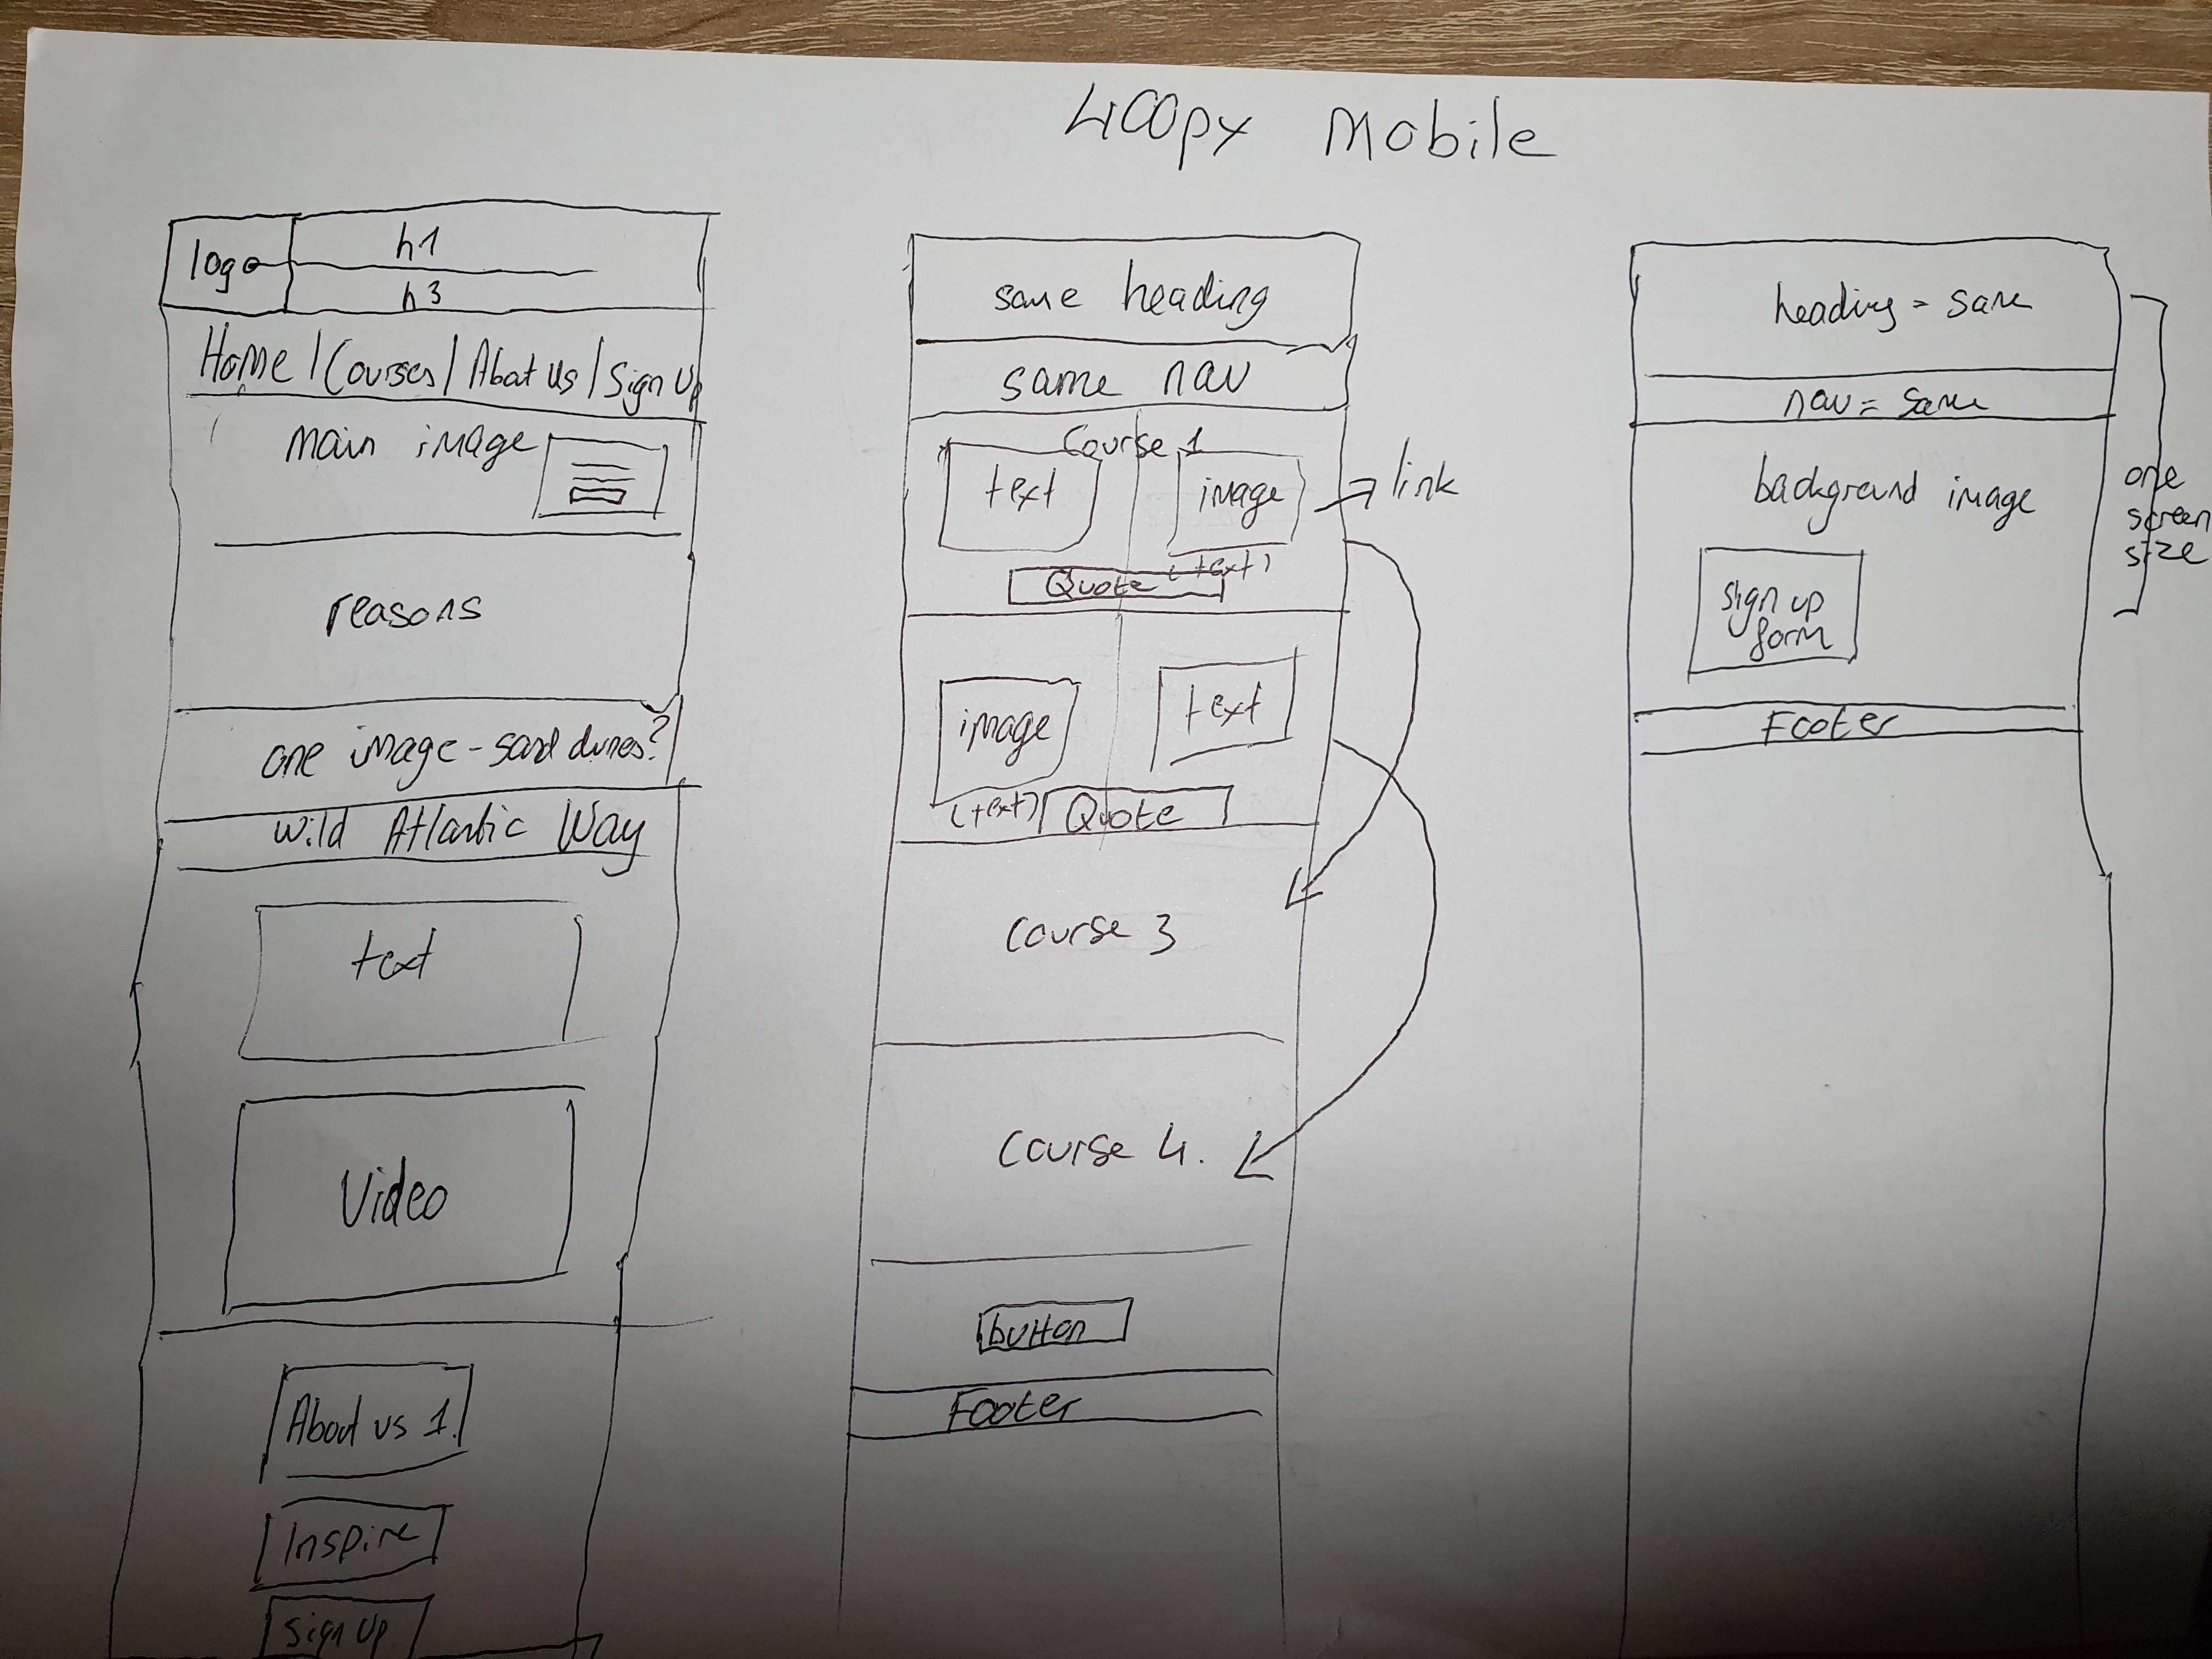 480px Mobile
logo
h1
h3
Home / Courses / About us / Sign Up
main image
reasons
one image - sand dunes?
Wild Atlantic Way
text
Video
About us 1
Inspire
Sign up
same heading
same nav
Course 1
text
image
link
Quote (text)
image
text
(text) Quote
Course 3
Course 4.
button
Footer
heading = same
nav = same
background image
sign up
form
Footer
one
screen
size